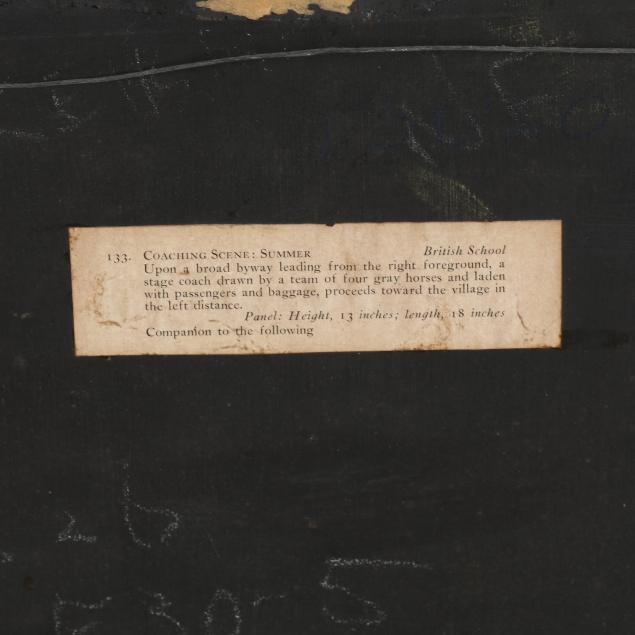 133. COACHING SCENE: SUMMER British School
Upon a broad byway leading from the right foreground, a
stage coach drawn by a team of four gray horses and laden
with passengers and baggage, proceeds toward the village in
the left distance.
Panel: Height, 13 inches; length, 18 inches
Companion to the following